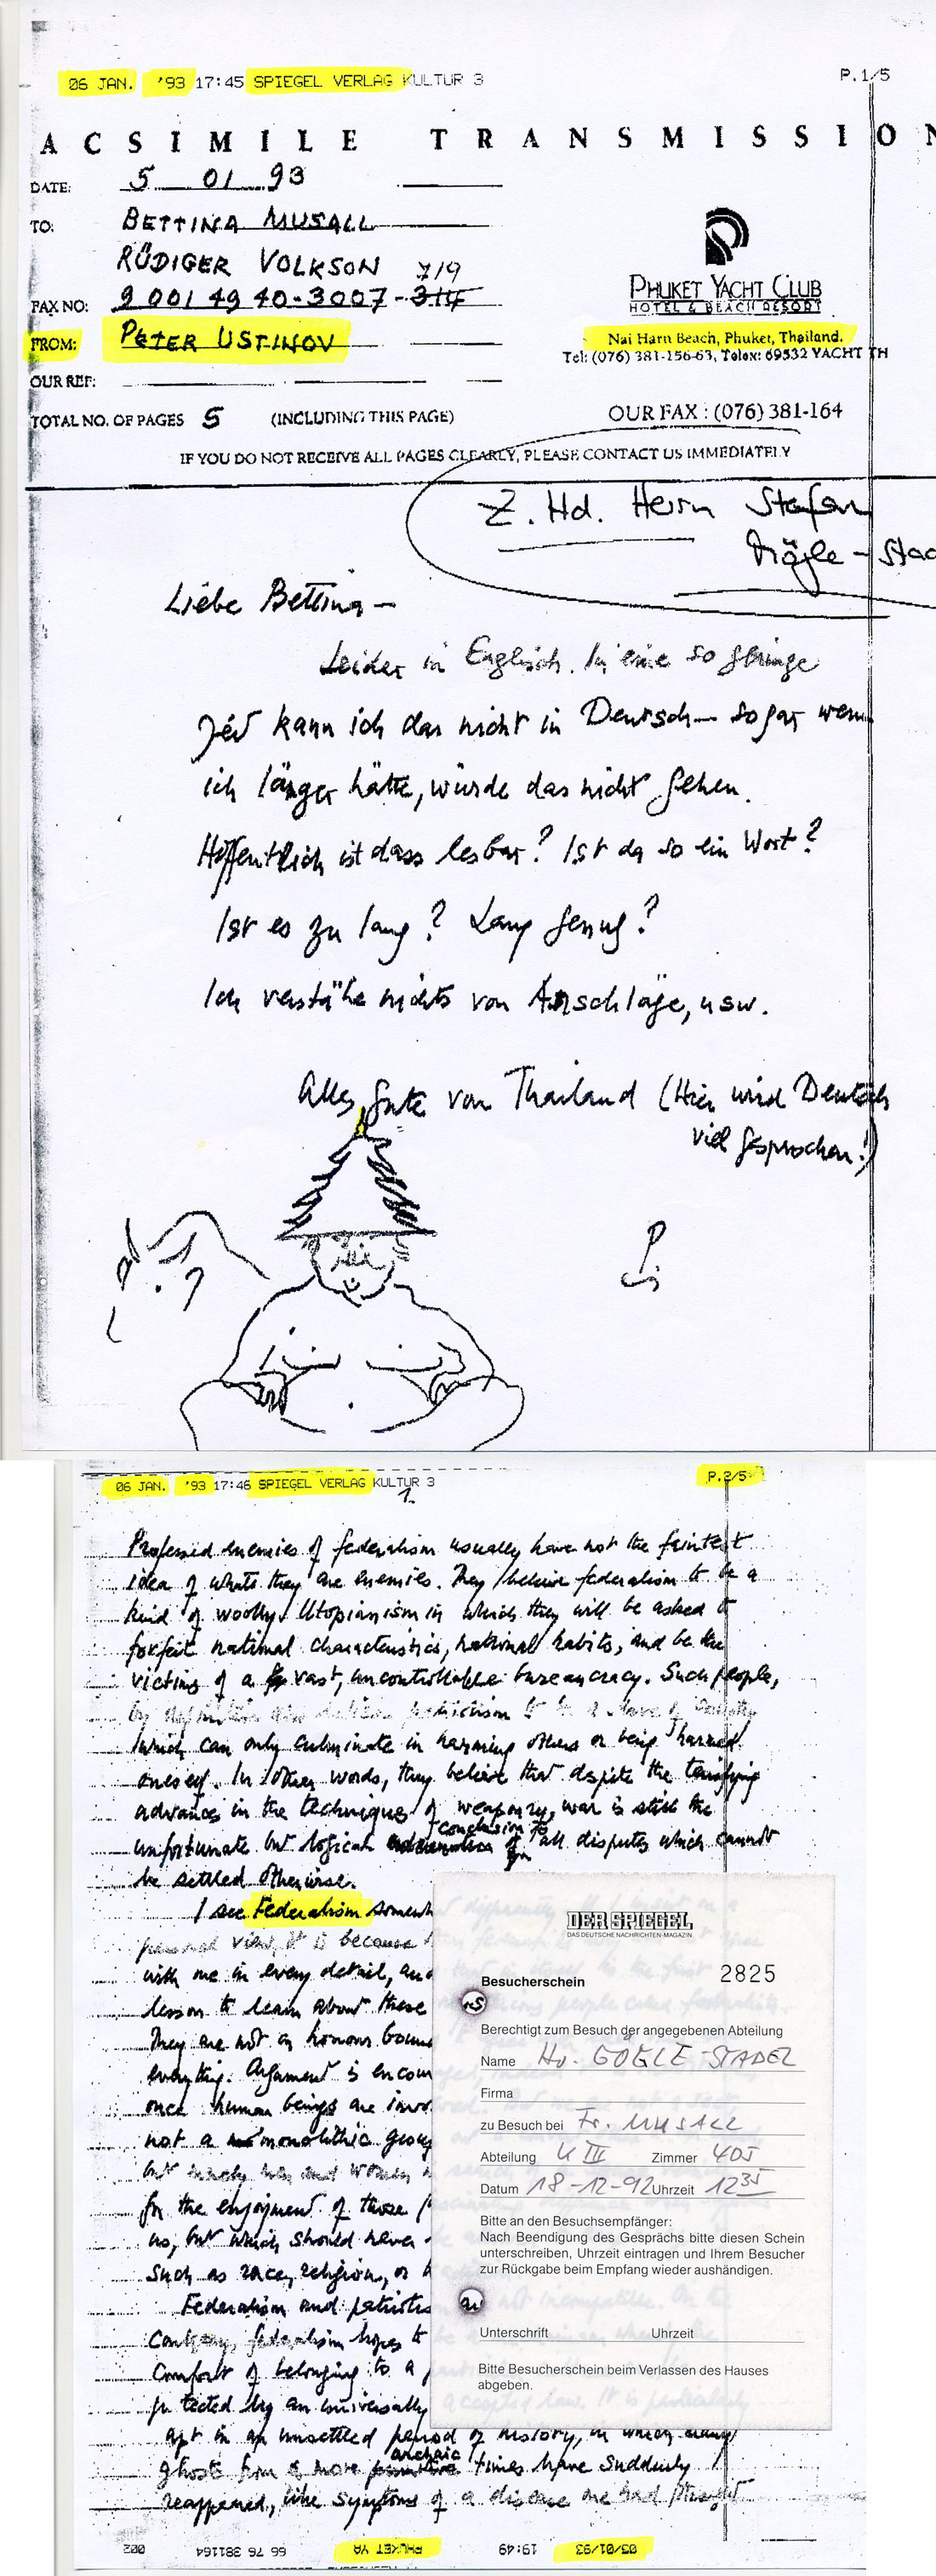 06 JAN. '93 17:45 SPIEGEL VERLAG KULTUR 3 P.1/5
ACSIMILE TRANSMISSION
DATE: 5 01 93
TO: BETTINA MUSALL
RÜDIGER VOLKSON 719
FAX NO: 9 001 49 40-3007-314
FROM: PETER USTINOV
OUR REF:
TOTAL NO. OF PAGES 5 (INCLUDING THIS PAGE)
PHUKET YACHT CLUB
HOTEL & BEACH RESORT
Nai Harn Beach, Phuket, Thailand.
Tel: (076) 381-156-63, Telex: 69532 YACHT TH
OUR FAX : (076) 381-164
IF YOU DO NOT RECEIVE ALL PAGES CLEARLY, PLEASE CONTACT US IMMEDIATELY
Z. Hd. Herrn Stefan
Liebe Bettina –
Leider in Englisch. In eine so geringe
Zeit kann ich das nicht in Deutsch – sogar wenn
ich länger hätte, würde das nicht gehen.
Hoffentlich ist dass lesbar? Ist da so ein Wort?
Ist es zu lang? Lang genug?
Ich verstähe nichts von Anschläge, usw.
Alles gute von Thailand (Hier wird Deutsch
viel gesprochen!)
06 JAN. '93 17:46 SPIEGEL VERLAG KULTUR 3 P.2/5
1.
Professed enemies of federalism usually have not the faintest
idea of whats they are enemies. They believe federalism to be a
kind of woolly Utopianism in which they will be asked to
forfeit national characteristics, national habits, and be the
victims of a vast, uncontrollable bureaucracy. Such people,
by definition patriotism to be a love of Country
which can only culminate in harming others or being harmed
oneself. In other words, they believe that despite the terrifying
advances in the techniques of weaponry, war is still the
unfortunate but logical conclusion to all disputes which cannot
be settled otherwise.
I see Federalism
personal view, it is because
with me in every detail, and
lesson to learn about these
They are not on honour bound
everything. Argument is
once human beings are
not a monolithic group
but merely men and women
for the enjoyment of those
us, but which should never
such as race, religion, or
Federalism and
Contrary, federalism hopes to
Comfort of belonging to a
protected by an universally accepted law. It is particularly
apt in an unsettled period of history, in which many
ghosts from a more archaic times have suddenly
reappeared, like symptoms of a disease one had thought
DER SPIEGEL
DAS DEUTSCHE NACHRICHTEN-MAGAZIN
Besucherschein 2825
Berechtigt zum Besuch der angegebenen Abteilung
Name Hr. GÖGLE-STADEL
Firma
zu Besuch bei Fr. MUSALL
Abteilung K III Zimmer 405
Datum 18-12-92 Uhrzeit 12 35
Bitte an den Besuchsempfänger:
Nach Beendigung des Gesprächs bitte diesen Schein
unterschreiben, Uhrzeit eintragen und Ihrem Besucher
zur Rückgabe beim Empfang wieder aushändigen.
Unterschrift Uhrzeit
Bitte Besucherschein beim Verlassen des Hauses
abgeben.
05/01/93 19:49 PHUKET YA 66 76 381164 002